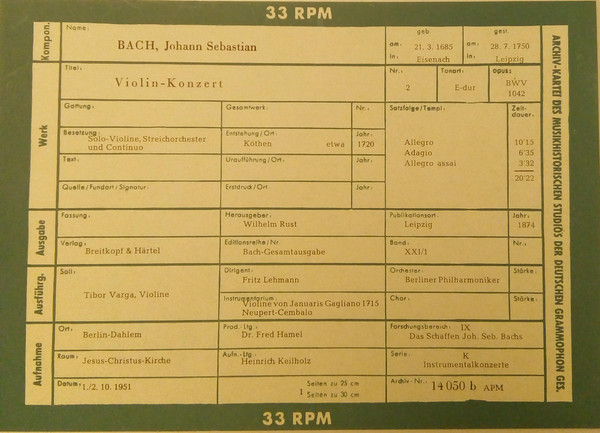 33 RPM
Kompon.
Name:
BACH, Johann Sebastian
geb.
am: 21. 3. 1685
in: Eisenach
gest.
am: 28. 7. 1750
in: Leipzig
Werk
Titel:
Violin-Konzert
Nr.:
2
Tonart:
E-dur
opus:
BWV
1042
Gattung:
Gesamtwerk:
Nr.:
Satzfolge/Tempi:
Zeit-
dauer:
Besetzung:
Solo-Violine, Streichorchester
und Continuo
Entstehung/Ort:
Köthen etwa
Jahr:
1720
Allegro 10'15
Adagio 6'35
Allegro assai 3'32
20'22
Text:
Uraufführung/Ort:
Jahr:
Quelle/Fundort/Signatur:
Erstdruck/Ort
Jahr:
Ausgabe
Fassung:
Herausgeber:
Wilhelm Rust
Publikationsort:
Leipzig
Jahr:
1874
Verlag:
Breitkopf & Härtel
Editionsreihe/Nr.
Bach-Gesamtausgabe
Band:
XXI/1
Nr.:
Ausführg.
Soli:
Tibor Varga, Violine
Dirigent:
Fritz Lehmann
Orchester:
Berliner Philharmoniker
Stärke:
Instrumentarium:
Violine von Januaris Gagliano 1715
Neupert-Cembalo
Chor:
Stärke:
Aufnahme
Ort:
Berlin-Dahlem
Prod.-Ltg.:
Dr. Fred Hamel
Forschungsbereich: IX
Das Schaffen Joh. Seb. Bachs
Raum: Jesus-Christus-Kirche
Aufn.-Ltg.:
Heinrich Keilholz
Serie: K
Instrumentalkonzerte
Datum: 1./2. 10. 1951
Seiten zu 25 cm
1 Seiten zu 30 cm
Archiv-Nr.: 14 050 b APM
ARCHIV-KARTEI DES MUSIKHISTORISCHEN STUDIOS DER DEUTSCHEN GRAMMOPHON GES.
33 RPM